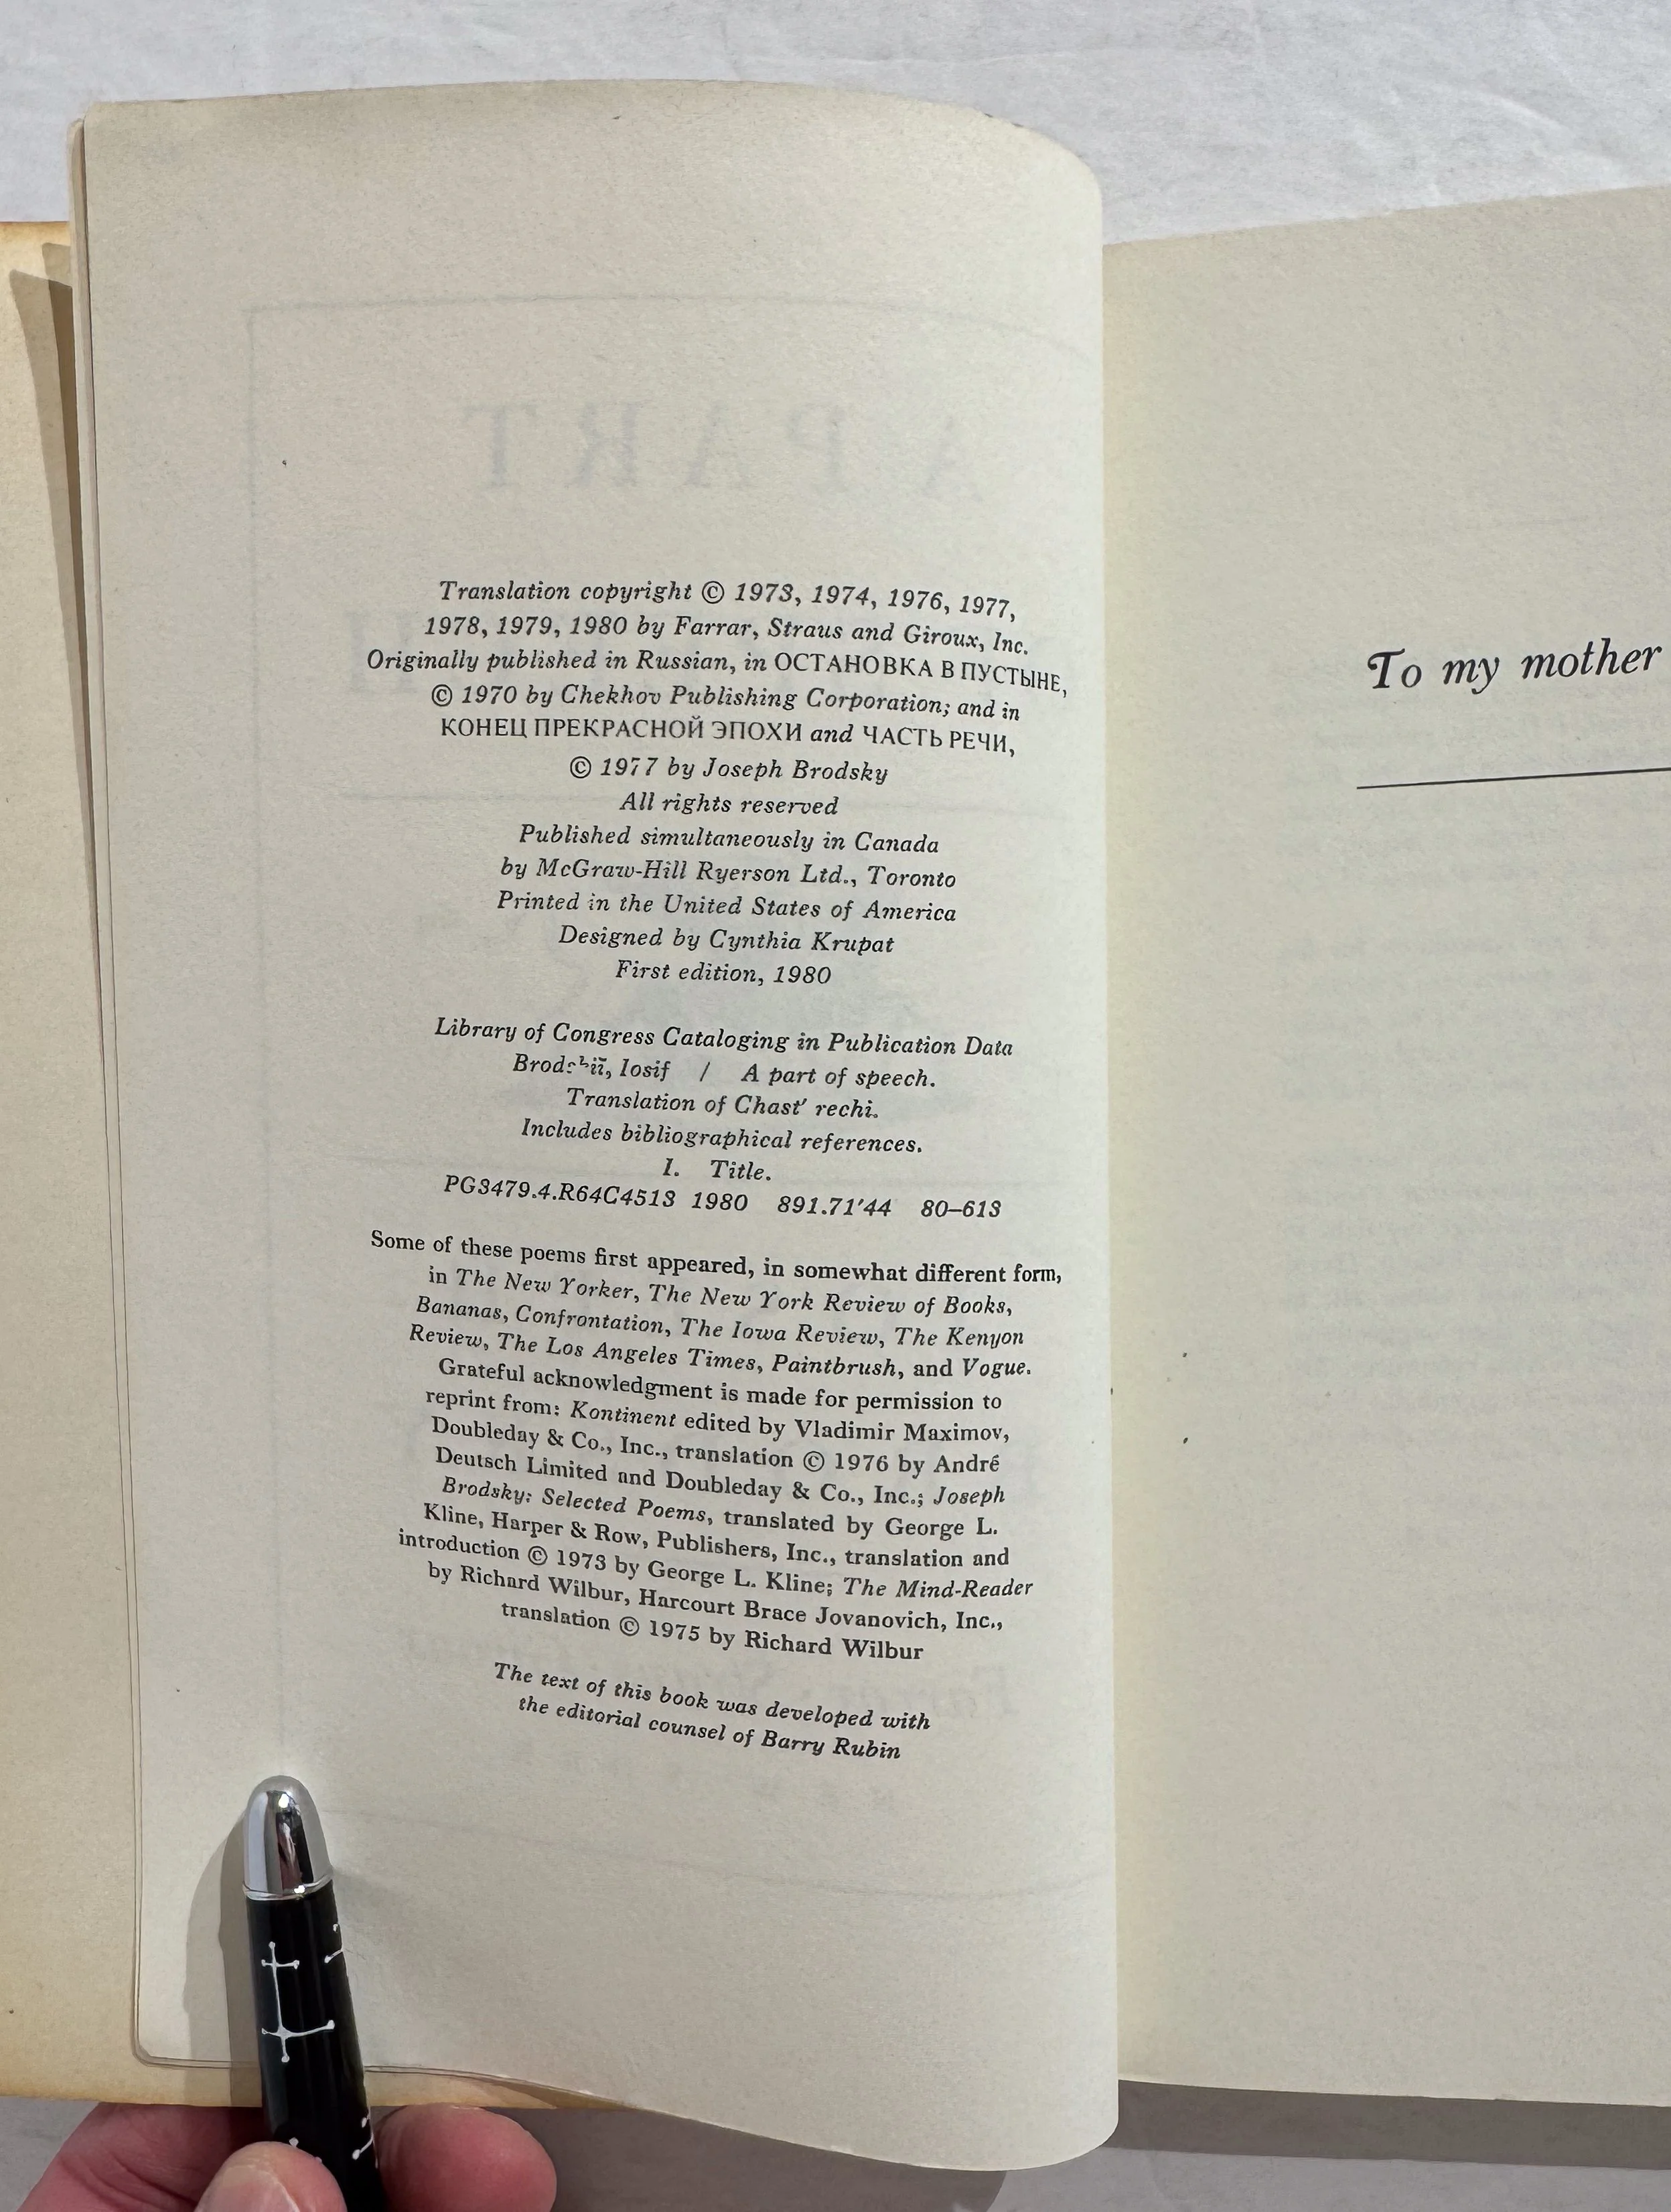 Translation copyright © 1973, 1974, 1976, 1977,
1978, 1979, 1980 by Farrar, Straus and Giroux, Inc.
Originally published in Russian, in ОСТАНОВКА В ПУСТЫНЕ,
© 1970 by Chekhov Publishing Corporation; and in
КОНЕЦ ПРЕКРАСНОЙ ЭПОХИ and ЧАСТЬ РЕЧИ,
© 1977 by Joseph Brodsky
All rights reserved
Published simultaneously in Canada
by McGraw-Hill Ryerson Ltd., Toronto
Printed in the United States of America
Designed by Cynthia Krupat
First edition, 1980
Library of Congress Cataloging in Publication Data
Iosif / A part of speech.
Translation of Chast' rechi.
Includes bibliographical references.
I. Title.
PG3479.4.R64C4513 1980 891.71'44 80–613
Some of these poems first appeared, in somewhat different form,
in The New Yorker, The New York Review of Books,
Bananas, Confrontation, The Iowa Review, The Kenyon
Review, The Los Angeles Times, Paintbrush, and Vogue.
Grateful acknowledgment is made for permission to
reprint from: Kontinent edited by Vladimir Maximov,
Doubleday & Co., Inc., translation © 1976 by André
Deutsch Limited and Doubleday & Co., Inc.; Joseph
Brodsky: Selected Poems, translated by George L.
Kline, Harper & Row, Publishers, Inc., translation and
introduction © 1973 by George L. Kline; The Mind-Reader
by Richard Wilbur, Harcourt Brace Jovanovich, Inc.,
translation © 1975 by Richard Wilbur
The text of this book was developed with
the editorial counsel of Barry Rubin
To my mother
A PART